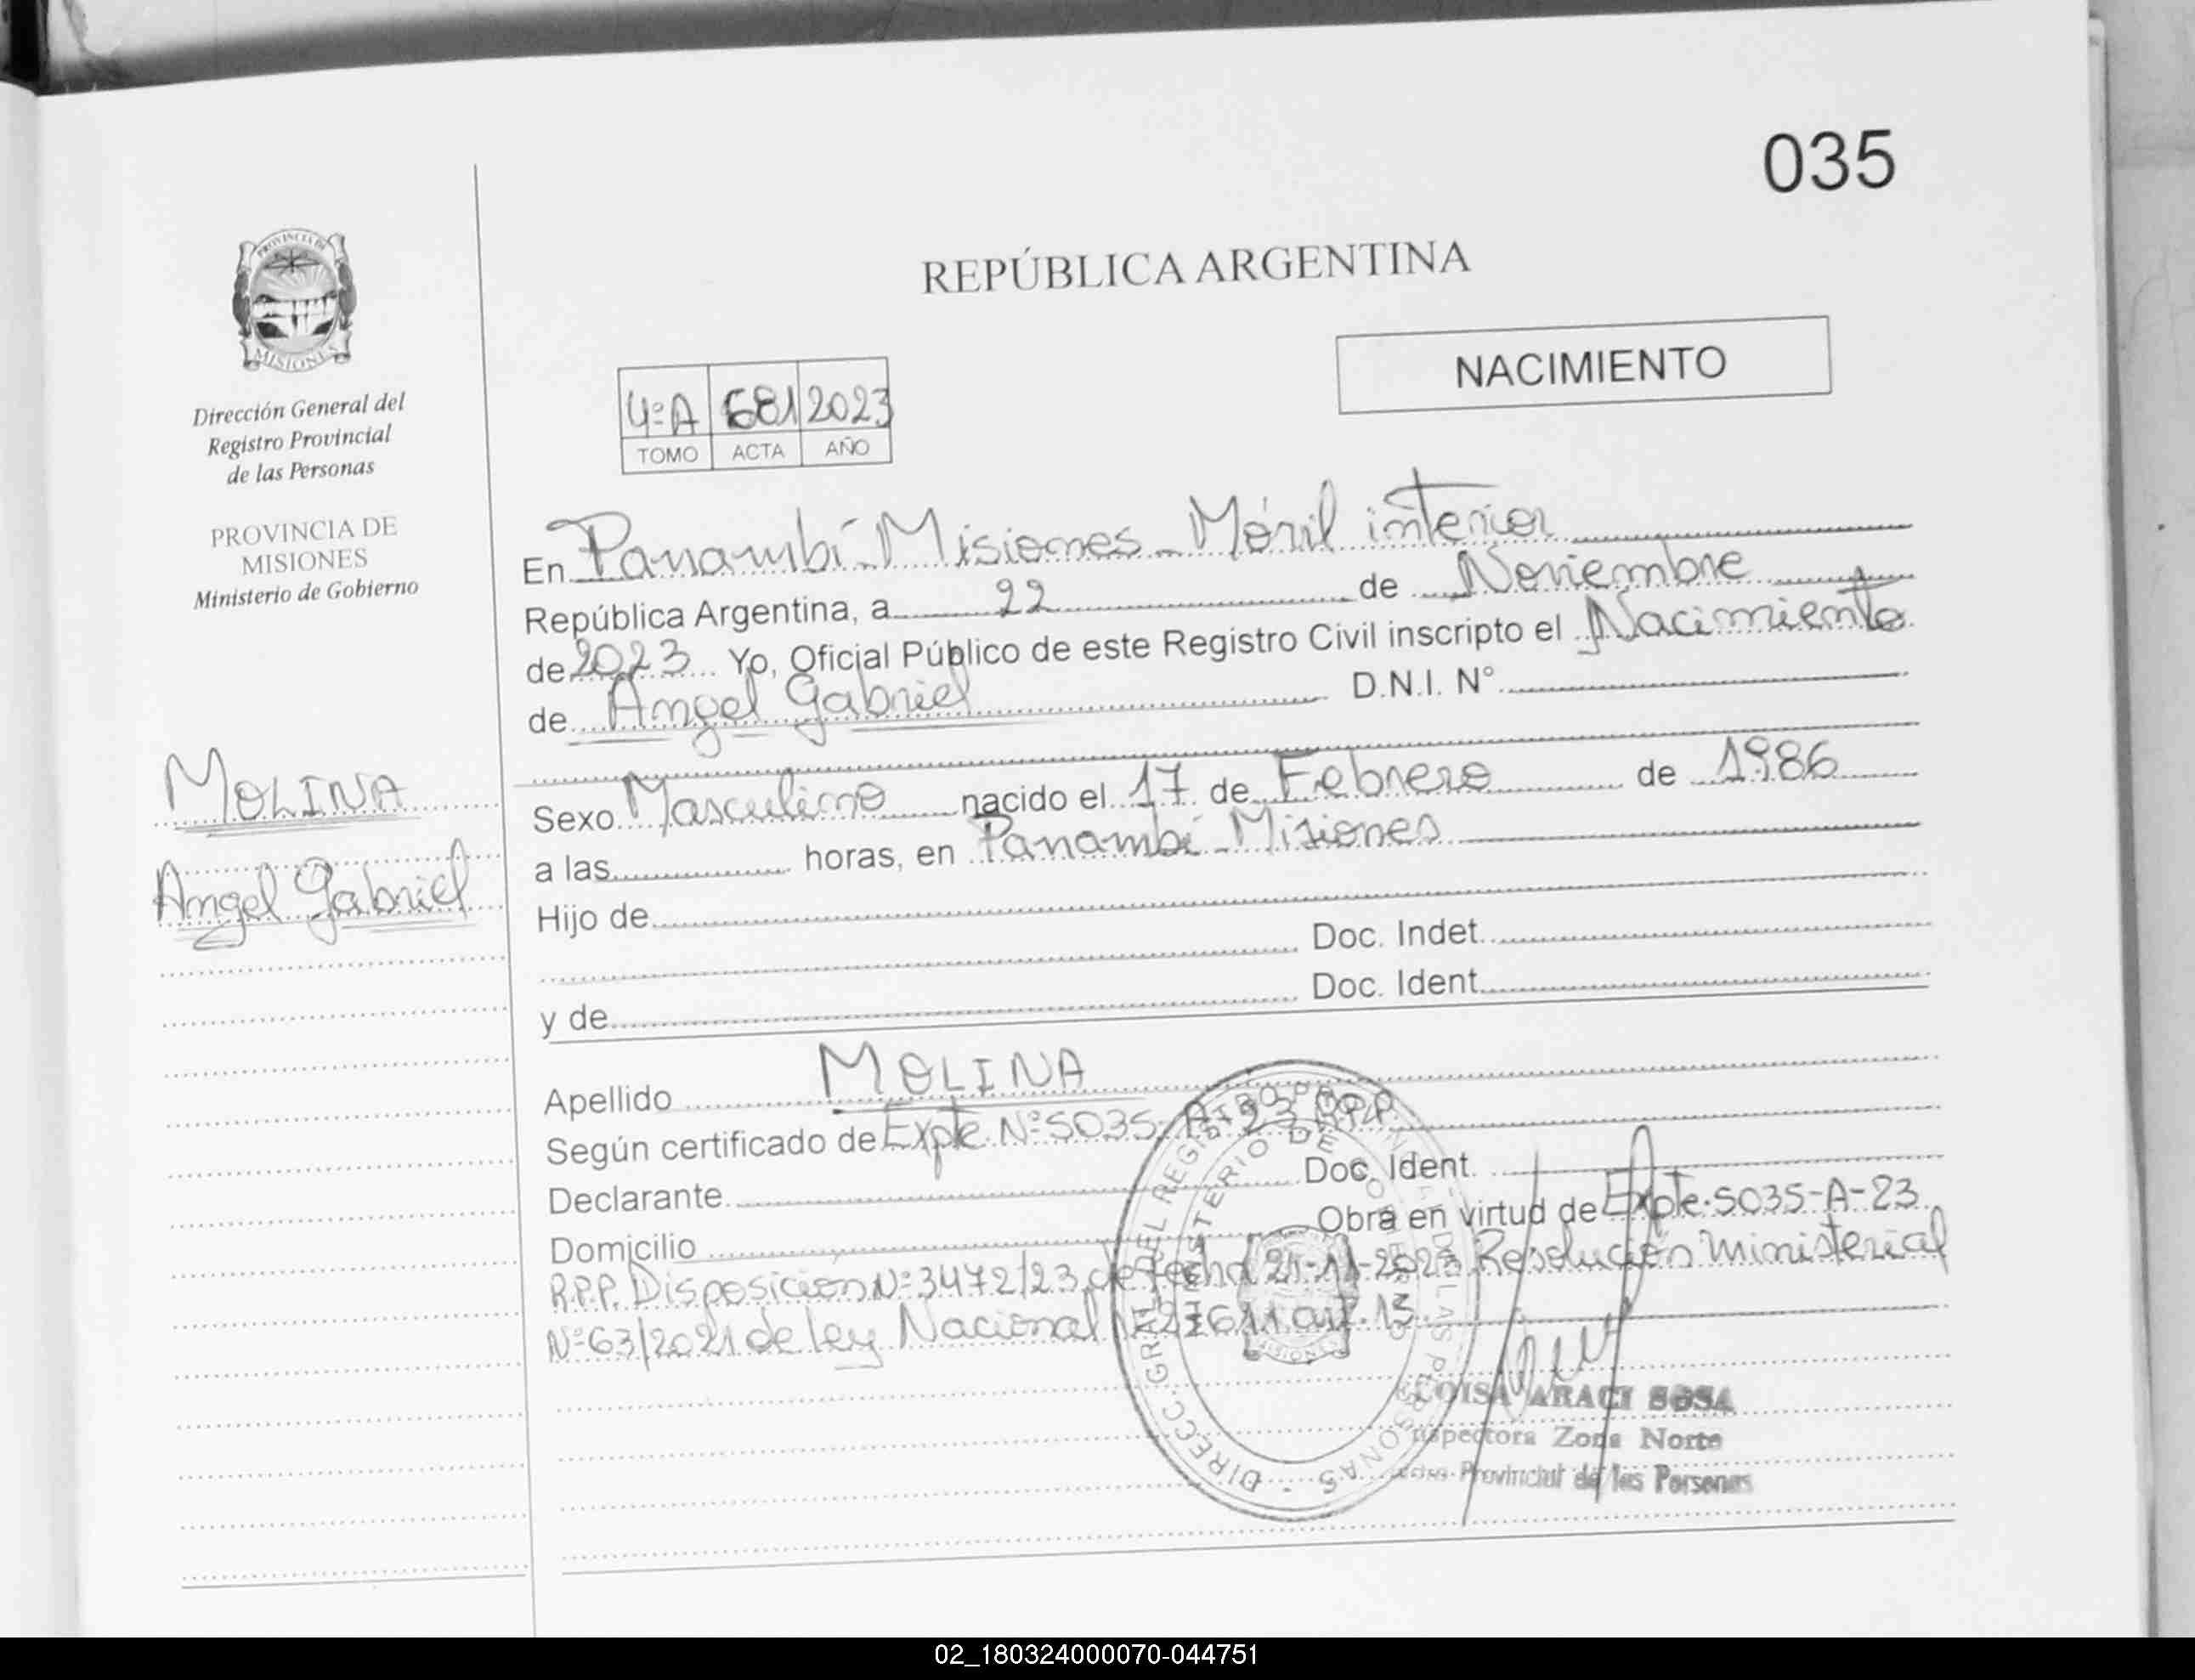 035
PROVINCIA DE
MISIONES
Dirección General del
Registro Provincial
de las Personas
PROVINCIA DE
MISIONES
Ministerio de Gobierno
MOLINA
Angel Gabriel
REPÚBLICA ARGENTINA
NACIMIENTO
4ºA 681 2023
TOMO ACTA AÑO
En Panambí-Misiones-Móvil interior
República Argentina, a 22 de Noviembre
de 2023 Yo, Oficial Público de este Registro Civil inscripto el Nacimiento
de Angel Gabriel D.N.I. N°
Sexo Masculino nacido el 17 de Febrero de 1986
a las horas, en Panambí-Misiones
Hijo de
Doc. Indet.
y de Doc. Ident.
Apellido MOLINA
Según certificado de Expte. Nº5035-A-23 RPP.
Declarante Doc. Ident.
Domicilio Obra en virtud de Expte.5035-A-23
R.P.P. Disposición Nº3472/23 de fecha 21-11-2023 Resolución ministerial
Nº63/2021 de ley Nacional 27611 art.13
DIRECC. GRAL. DEL REGISTRO PROVINCIAL DE LAS PERSONAS
MINISTERIO DE GOBIERNO
MISIONES
ELOISA ARACI SOSA
Inspectora Zona Norte
Provincial de las Personas
02_180324000070-044751